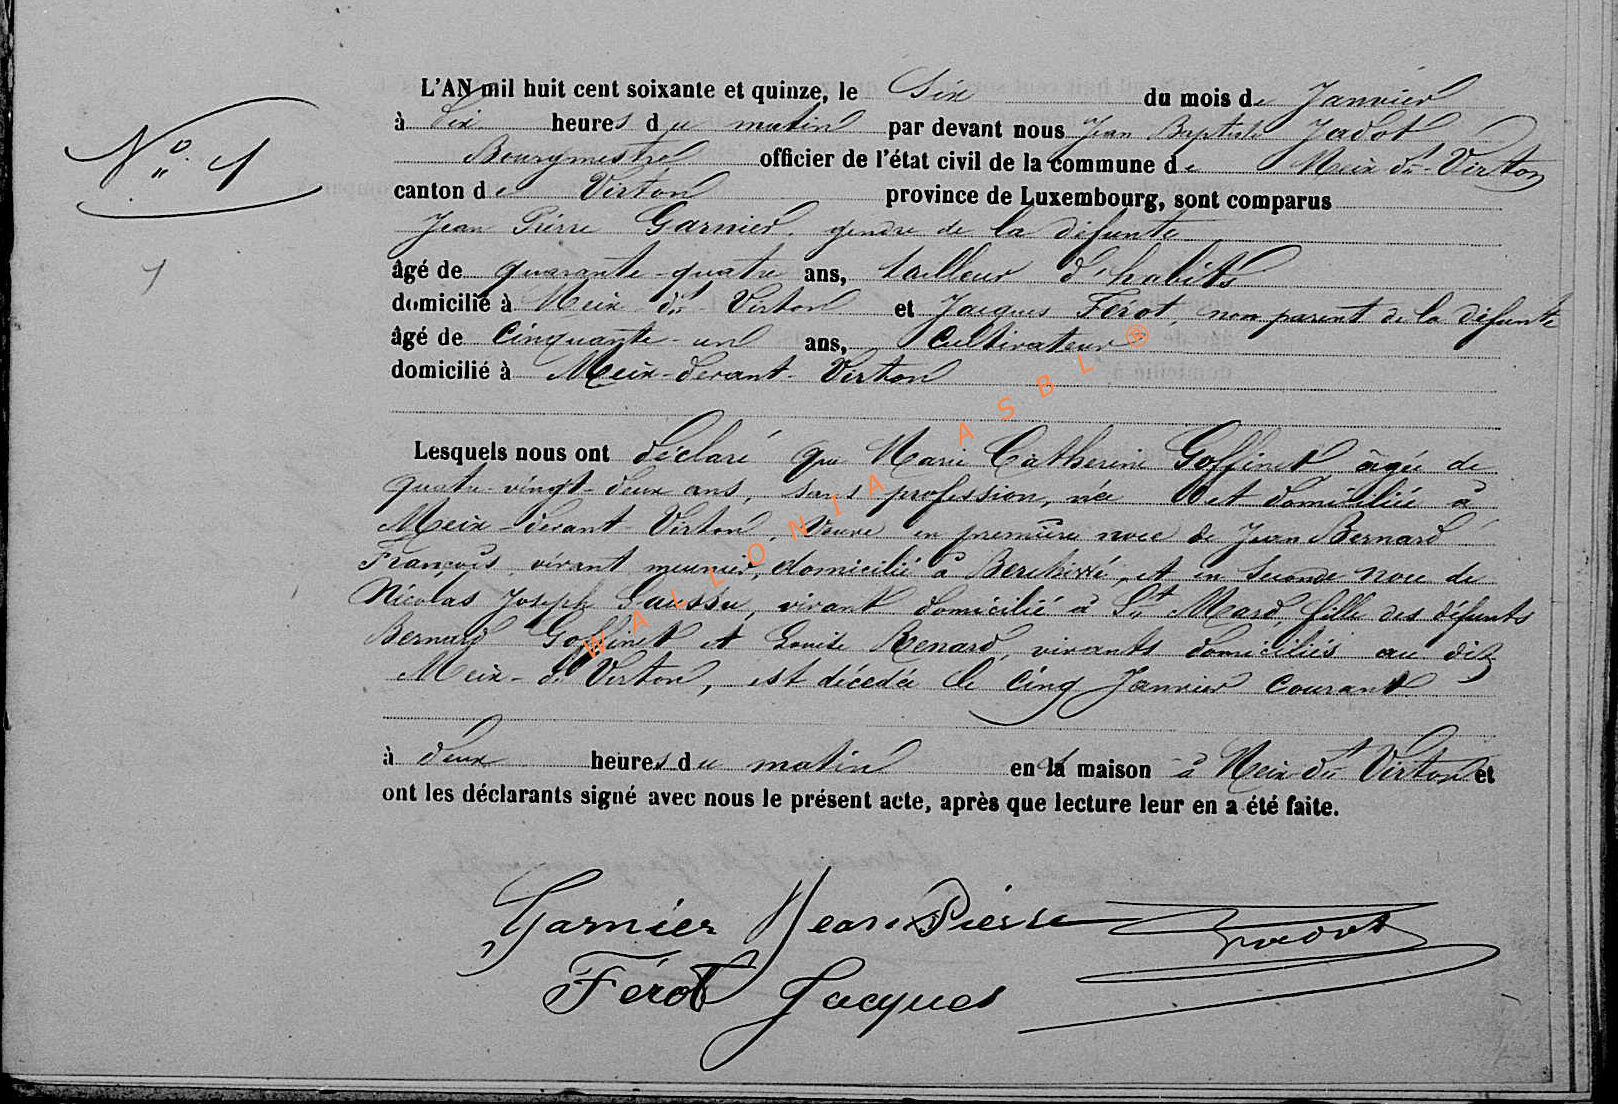 N° 1
1
L'AN mil huit cent soixante et quinze, le Six du mois de Janvier
à dix heures du matin par devant nous Jean Baptiste Jadot
Bourgmestre officier de l'état civil de la commune de Meix dt Virton
canton de Virton province de Luxembourg, sont comparus
Jean Pierre Garnier, gendre de la défunte
âgé de quarante-quatre ans, tailleur d'habits
domicilié à Meix dt Virton et Jacques Férot, non parent de la défunte
âgé de cinquante-un ans, cultivateur
domicilié à Meix-devant-Virton
Lesquels nous ont déclaré que Marie Catherine Goffinet âgée de
quatre-vingt-deux ans, sans profession, née et domiciliée à
Meix-devant-Virton, veuve en première noce de Jean Bernard
François, vivant meunier, domicilié à et en seconde noce de
Nicolas Joseph vivant domicilié à St Mard, fille des défunts
Bernard Goffinet et Louise Renard, vivants domiciliés au dit
Meix-dt Virton, est décédée le cinq Janvier courant
à deux heures du matin en la maison à Meix dt Virton et
ont les déclarants signé avec nous le présent acte, après que lecture leur en a été faite.
Garnier Jean Pierre Jadot
Férot Jacques
WALLONIA ASBL ®